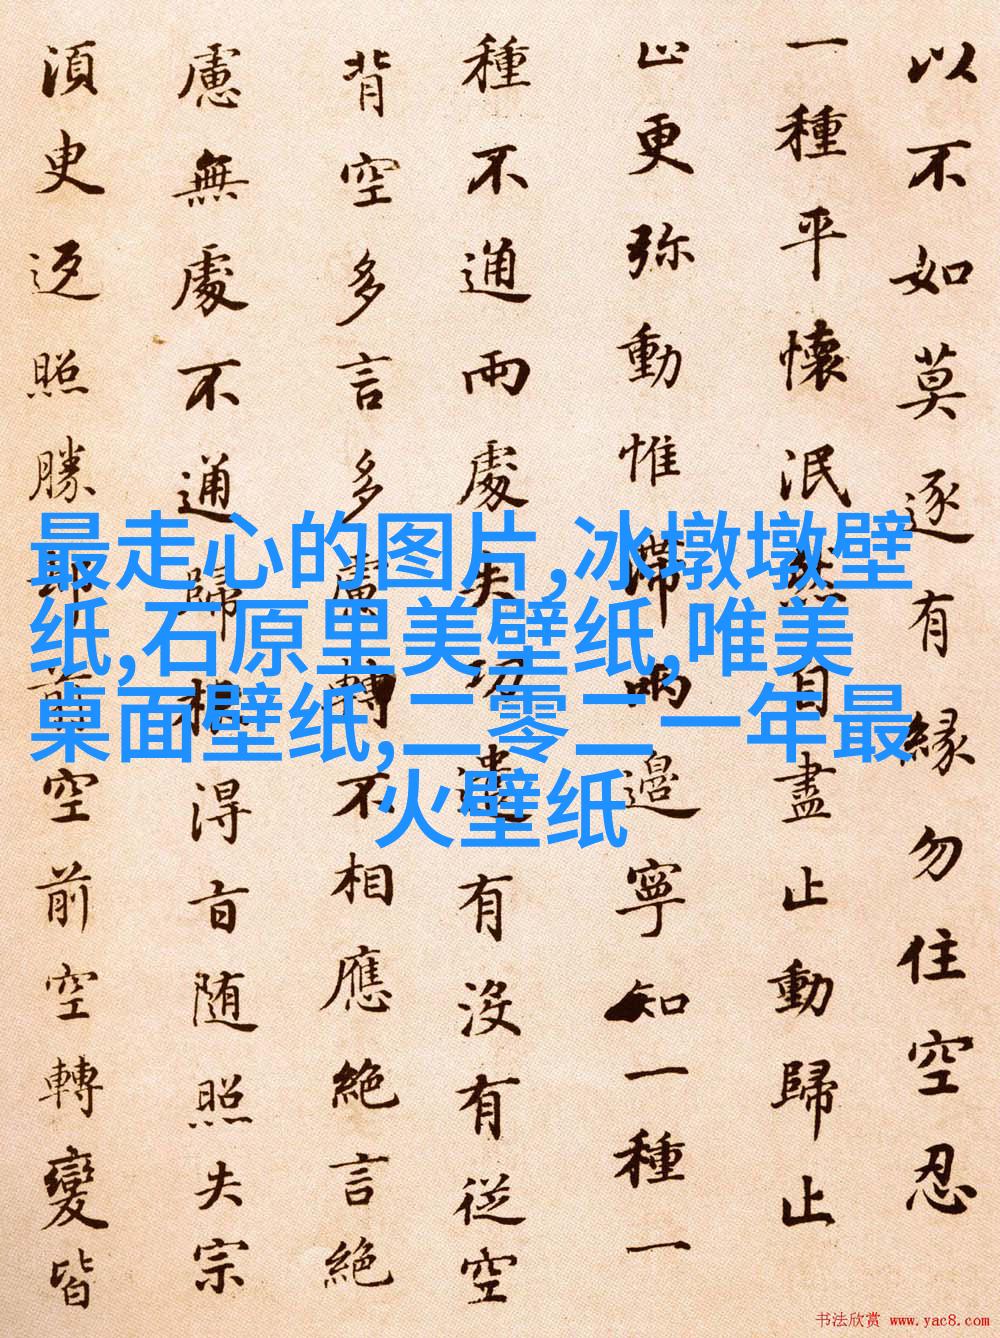 以不如莫逐有緣勿住空忍
一種平懷泯然自盡止動歸止
止更弥動惟滯兩邊寧知一種一
種不通兩處失功遣有沒有從空
背空多言多慮轉不相應絶言絶
慮無處不通歸根得旨随照失宗
須臾返照勝却前空前空轉變皆
最走心的图片,冰墩墩壁
纸,石原里美壁纸,唯美
桌面壁纸,二零二一年最
火壁纸
书法欣赏 www.yac8.com